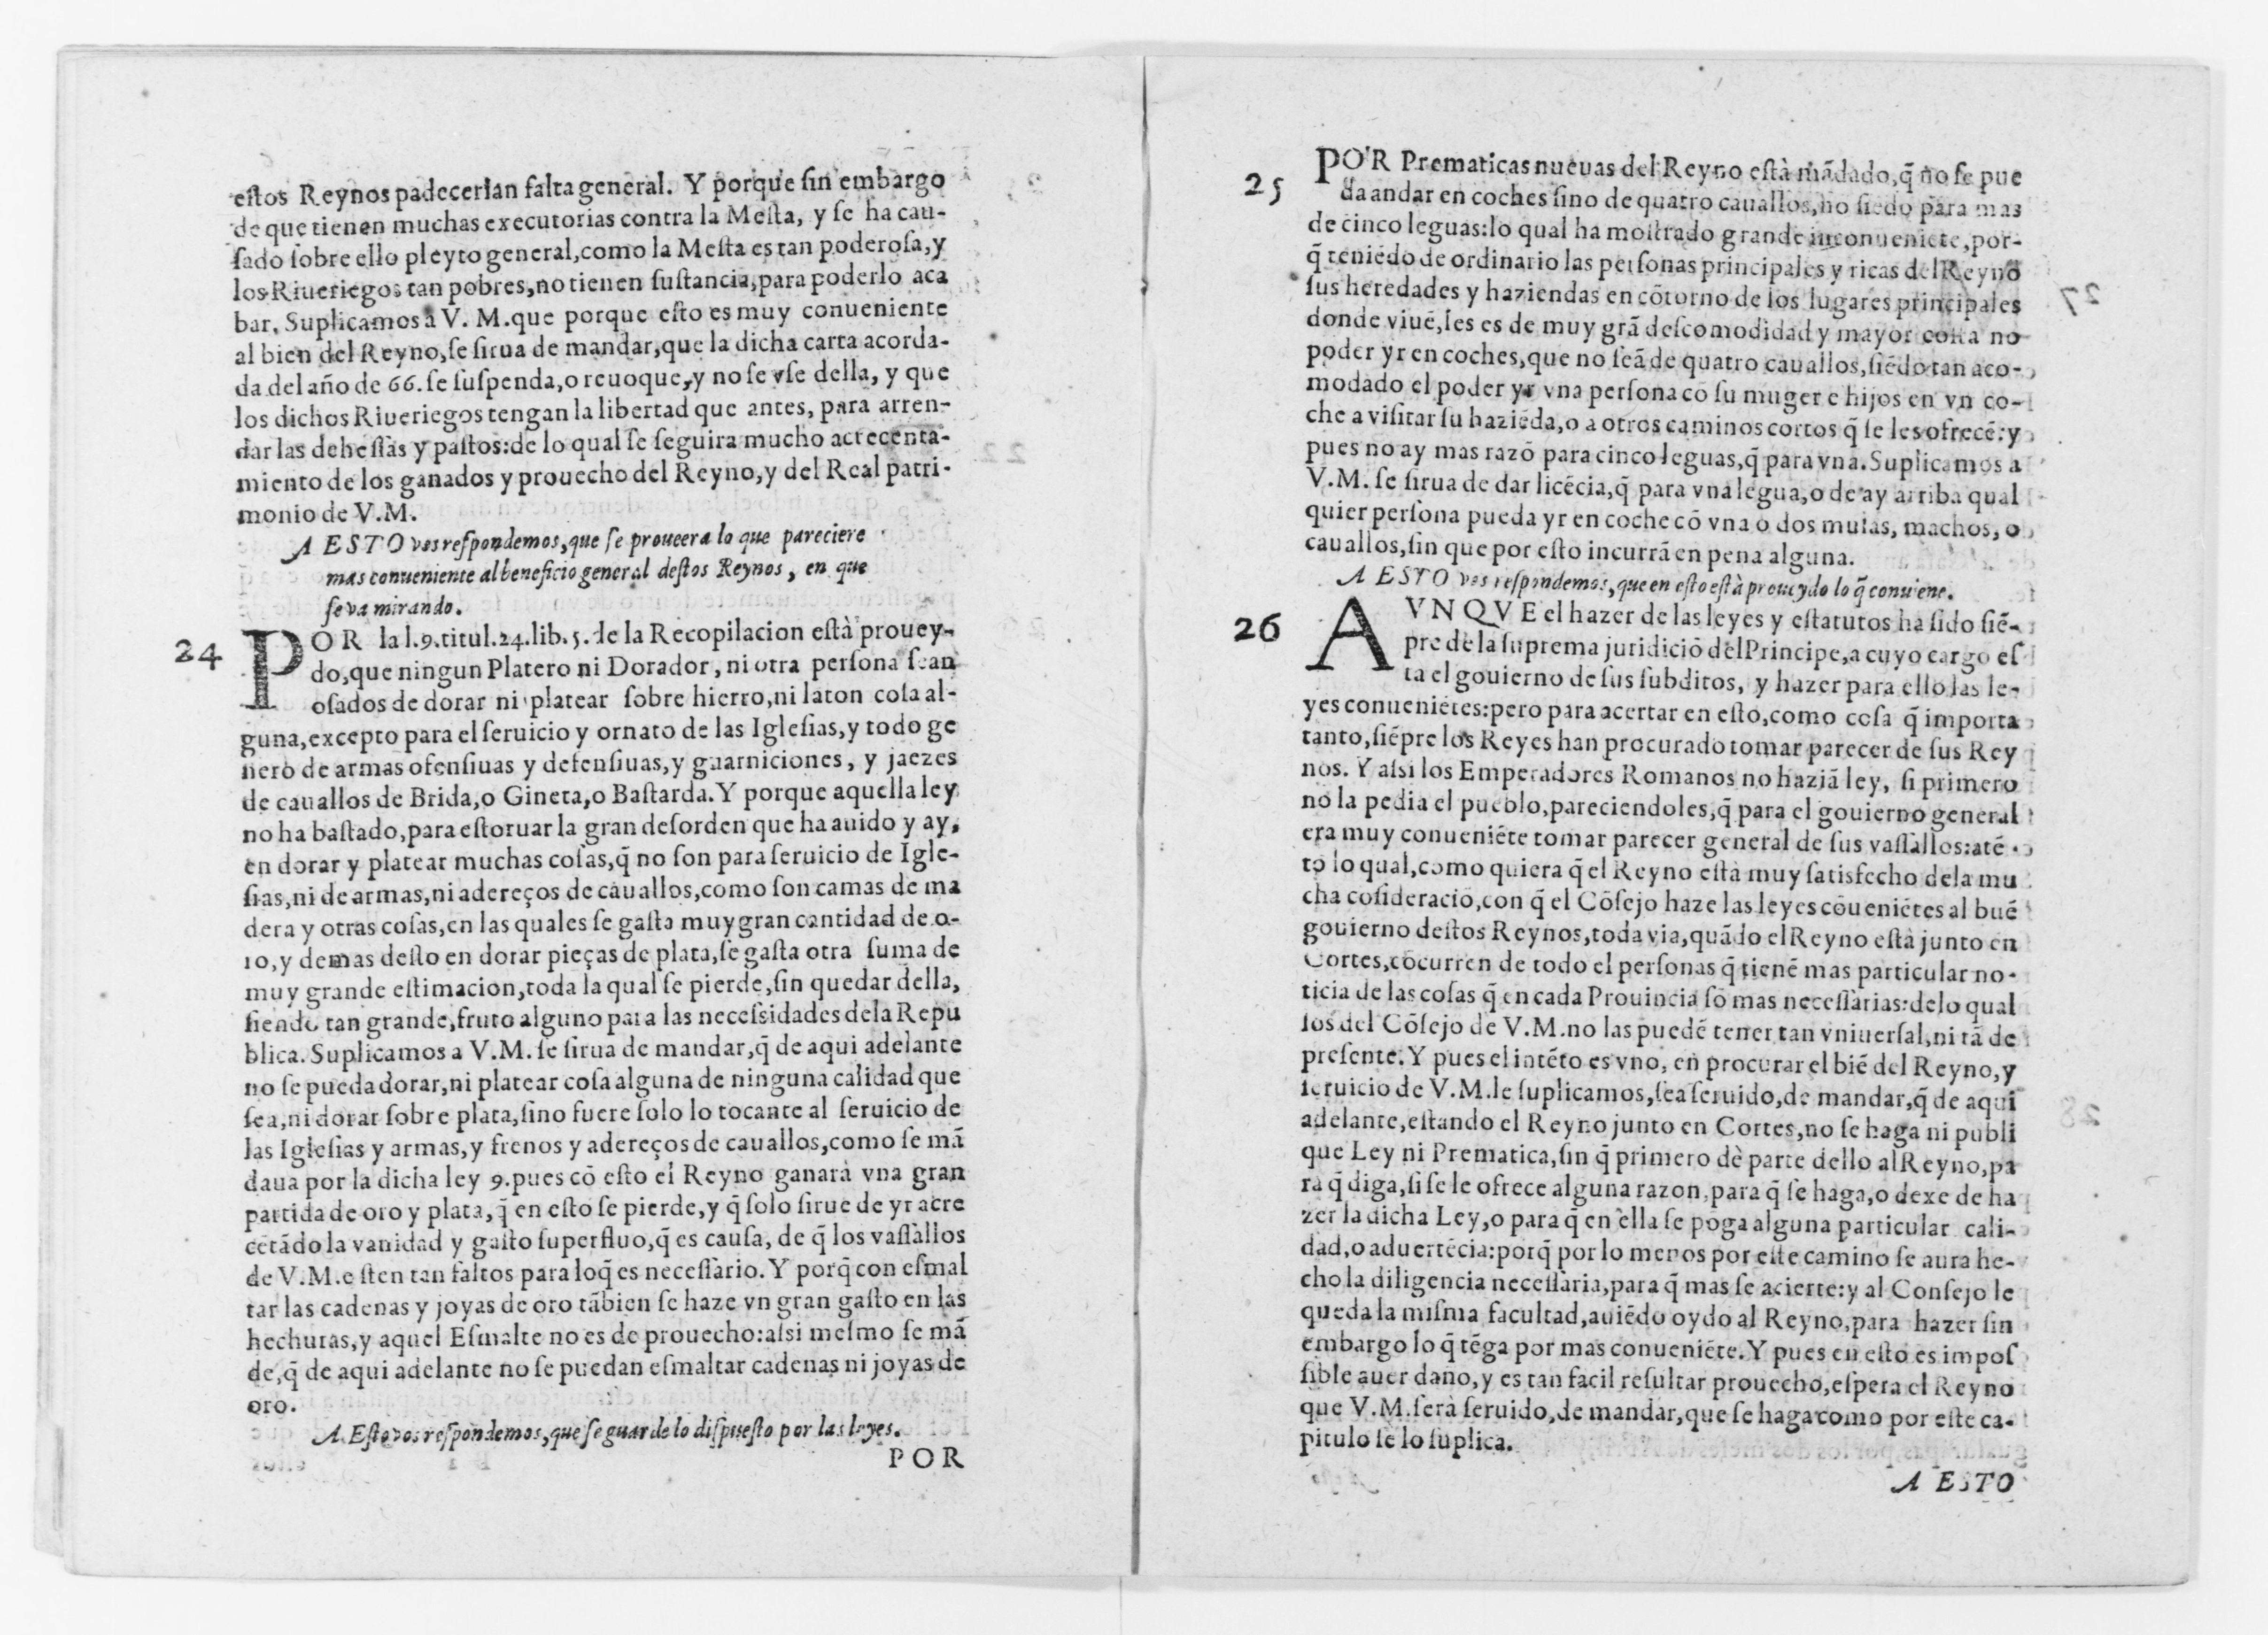 estos Reynos padecerian falta general. Y porque sin embargo
de que tienen muchas executorias contra la Mesta, y se ha cau-
sado sobre ello pleyto general, como la Mesta es tan poderosa, y
los Riueriegos tan pobres, no tienen sustancia, para poderlo aca
bar, Suplicamos à V. M. que porque esto es muy conueniente
al bien del Reyno, se sirua de mandar, que la dicha carta acorda-
da del año de 66. se suspenda, o reuoque, y no se vse della, y que
los dichos Riueriegos tengan la libertad que antes, para arren-
dar las dehessas y pastos: de lo qual se seguira mucho acrecenta-
miento de los ganados y prouecho del Reyno, y del Real patri-
monio de V.M.
A ESTO vos respondemos, que se proueera lo que pareciere
mas conueniente al beneficio general destos Reynos, en que
se va mirando.
24 POR la l.9.titul.24.lib.5.de la Recopilacion està prouey-
do, que ningun Platero ni Dorador, ni otra persona sean
osados de dorar ni platear sobre hierro, ni laton cosa al-
guna, excepto para el seruicio y ornato de las Iglesias, y todo ge
nero de armas ofensiuas y defensiuas, y guarniciones, y jaezes
de cauallos de Brida, o Gineta, o Bastarda. Y porque aquella ley
no ha bastado, para estoruar la gran desorden que ha auido y ay,
en dorar y platear muchas cosas, q̃ no son para seruicio de Igle-
sias, ni de armas, ni adereços de cauallos, como son camas de ma
dera y otras cosas, en las quales se gasta muy gran cantidad de o-
ro, y demas desto en dorar pieças de plata, se gasta otra suma de
muy grande estimacion, toda la qual se pierde, sin quedar della,
siendo tan grande, fruto alguno para las necessidades dela Repu
blica. Suplicamos a V.M. se sirua de mandar, q̃ de aqui adelante
no se pueda dorar, ni platear cosa alguna de ninguna calidad que
sea, ni dorar sobre plata, sino fuere solo lo tocante al seruicio de
las Iglesias y armas, y frenos y adereços de cauallos, como se mã
daua por la dicha ley 9. pues cõ esto el Reyno ganarà vna gran
partida de oro y plata, q̃ en esto se pierde, y q̃ solo sirue de yr acre
cetãdo la vanidad y gasto superfluo, q̃ es causa, de q̃ los vassallos
de V.M. esten tan faltos para loq̃ es necessario. Y porq̃ con esmal
tar las cadenas y joyas de oro tãbien se haze vn gran gasto en las
hechuras, y aquel Esmalte no es de prouecho: assi mesmo se mã
de, q̃ de aqui adelante no se puedan esmaltar cadenas ni joyas de
oro.
A Esto vos respondemos, que se guarde lo dispuesto por las leyes.
POR
25 POR Prematicas nueuas del Reyno està mãdado, q̃ no se pue
da andar en coches sino de quatro cauallos, no siẽdo para mas
de cinco leguas: lo qual ha mostrado grande inconueniẽte, por-
q̃ teniẽdo de ordinario las personas principales y ricas del Reyno
sus heredades y haziendas en cõtorno de los lugares principales
donde viuẽ, les es de muy grã descomodidad y mayor costa no
poder yr en coches, que no seã de quatro cauallos, siẽdo tan aco-
modado el poder yr vna persona cõ su muger e hijos en vn co-
che a visitar su haziẽda, o a otros caminos cortos q̃ se les ofrecẽ: y
pues no ay mas razõ para cinco leguas, q̃ para vna. Suplicamos a
V.M. se sirua de dar licẽcia, q̃ para vna legua, o de ay arriba qual
quier persona pueda yr en coche cõ vna o dos mulas, machos, o
cauallos, sin que por esto incurrã en pena alguna.
A ESTO vos respondemos, que en esto està proueydo lo q̃ conuiene.
26 AVNQVE el hazer de las leyes y estatutos ha sido siẽ-
pre de la suprema juridiciõ del Principe, a cuyo cargo es
ta el gouierno de sus subditos, y hazer para ello las le-
yes conueniẽtes: pero para acertar en esto, como cosa q̃ importa
tanto, siẽpre los Reyes han procurado tomar parecer de sus Rey
nos. Y assi los Emperadores Romanos no haziã ley, si primero
no la pedia el pueblo, pareciendoles, q̃ para el gouierno general
era muy conueniẽte tomar parecer general de sus vassallos: atẽ
to lo qual, como quiera q̃ el Reyno està muy satisfecho dela mu
cha cosideraciõ, con q̃ el Cõsejo haze las leyes cõueniẽtes al buẽ
gouierno destos Reynos, toda via, quãdo el Reyno està junto en
Cortes, cõcurren de todo el personas q̃ tienẽ mas particular no-
ticia de las cosas q̃ en cada Prouincia sõ mas necessarias: delo qual
los del Cõsejo de V.M. no las puedẽ tener tan vniuersal, ni tã de
presente. Y pues el intẽto es vno, en procurar el biẽ del Reyno, y
seruicio de V.M. le suplicamos, sea seruido, de mandar, q̃ de aqui
adelante, estando el Reyno junto en Cortes, no se haga ni publi
que Ley ni Prematica, sin q̃ primero dè parte dello al Reyno, pa
ra q̃ diga, si se le ofrece alguna razon, para q̃ se haga, o dexe de ha
zer la dicha Ley, o para q̃ en ella se põga alguna particular cali-
dad, o aduertẽcia: porq̃ por lo menos por este camino se aura he-
cho la diligencia necessaria, para q̃ mas se acierte: y al Consejo le
queda la misma facultad, auiẽdo oydo al Reyno, para hazer sin
embargo lo q̃ tẽga por mas conueniẽte. Y pues en esto es impos
sible auer daño, y es tan facil resultar prouecho, espera el Reyno
que V.M. serà seruido, de mandar, que se haga como por este ca-
pitulo se lo suplica.
A ESTO